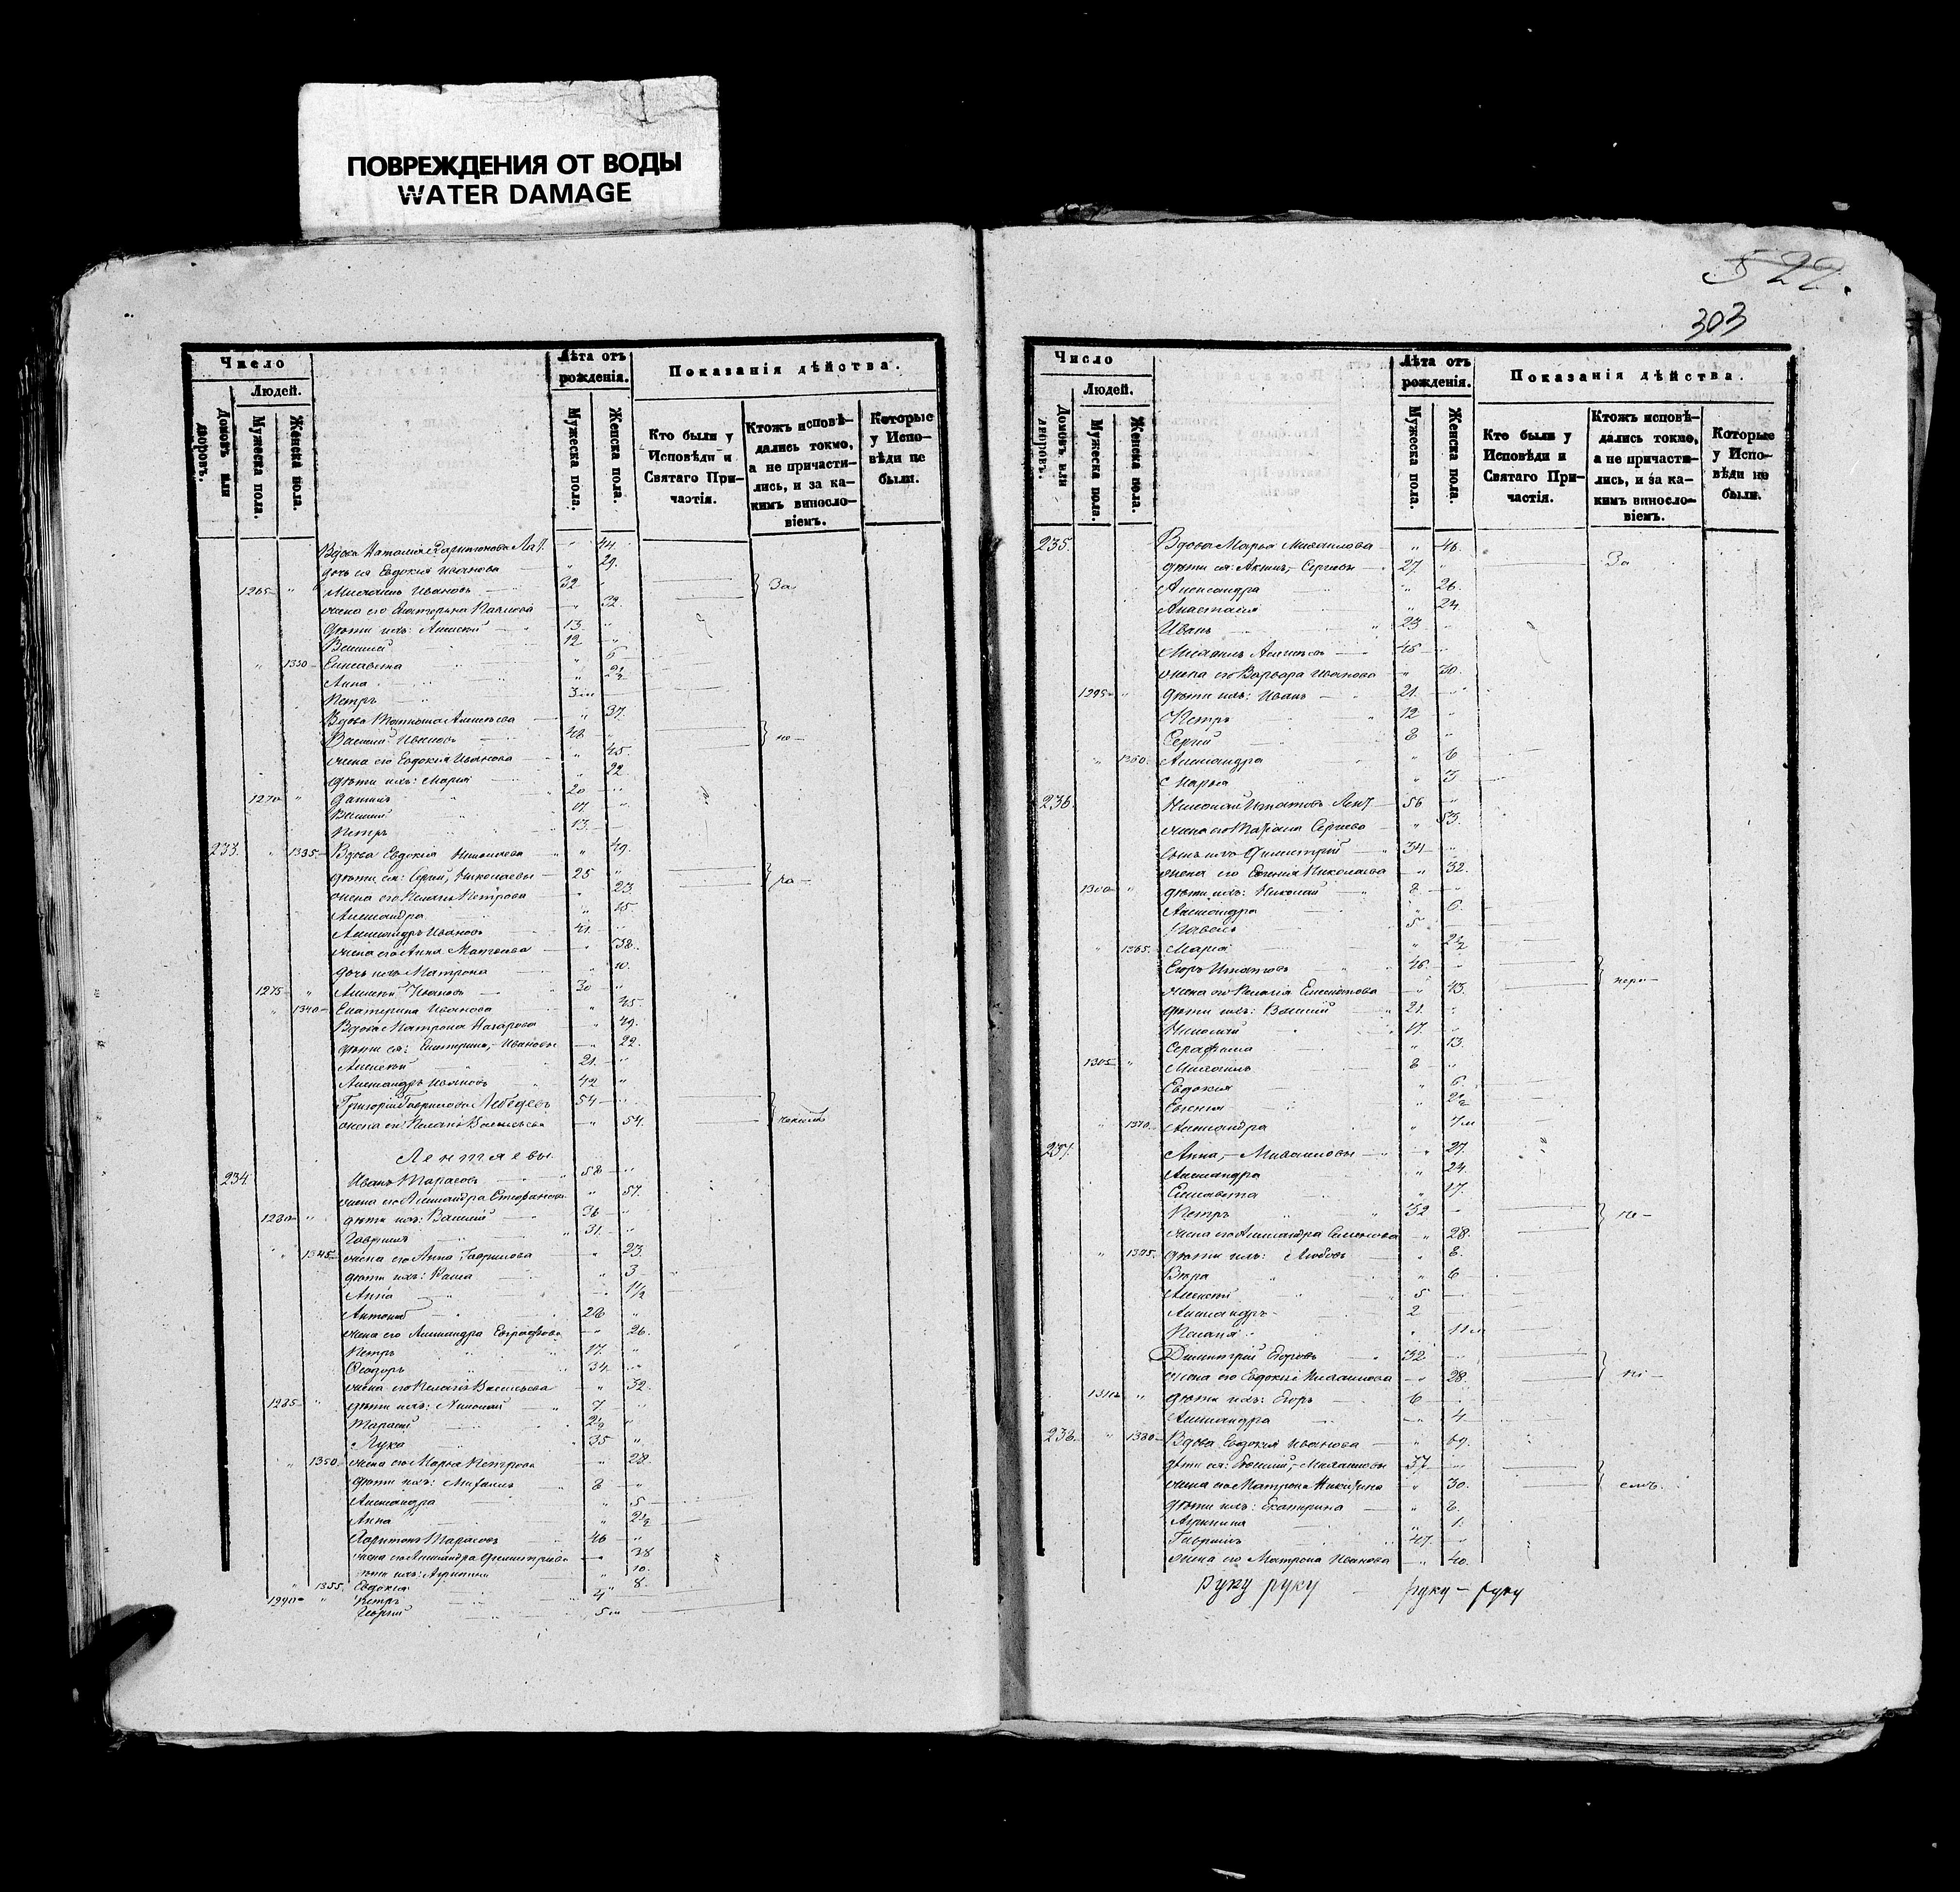 ПОВРЕЖДЕНИЯ ОТ ВОДЫ
WATER DAMAGE
Число
Людей.
Домовъ или дворовъ.
Мужеска пола.
Женска пола.
Лѣта отъ рожденія.
Мужеска пола.
Женска пола.
Показанія дѣйства.
Кто были у Исповѣди и Святаго Причастія.
Ктожъ исповѣдались токмо, а не причастились, и за какимъ винословіемъ.
Которые у Исповѣди не были.
Вдова Наталія Харитонова 44.
дочь ея Евдокія Иванова 29.
1265 Михаилъ Ивановъ 32 За
жена его Екатерина Павлова 32.
дѣти ихъ: Алексѣй 13
Василій 12
1330 Елисавета 6
Анна 2½
Петръ 3м
Вдова Татьяна Алексѣева 37.
Василій Ивановъ 48 не
жена его Евдокія Иванова 45.
дѣти ихъ: Марія 22
1270 Даніилъ 20
Василій 17
Петръ 13.
233. 1335 Вдова Евдокія Николаева 49.
дѣти ея: Сергій, Николаевы 25 ра
жена его Пелагія Петрова 23
Александра 15.
Александръ Ивановъ 41
жена его Анна Матвѣева 38.
дочь ихъ Матрона 10.
1275 Алексѣй Ивановъ 30
1340 Екатерина Иванова 45.
Вдова Матрона Назарова 49.
дѣти ея: Екатерина, Ивановы 22.
Алексѣй 21.
Александръ Ивановъ 42
Григорій Гавриловъ Лебедевъ 54
жена его Пелагія Васильева 54.
Лентяевы
234. Иванъ Тарасовъ 58
жена его Александра Стефанова 57.
1280 дѣти ихъ: Василій 36
Гавріилъ 31.
1345 жена его Анна Гаврилова 23.
дѣти ихъ: Раиса 3
Анна 1½
Антоній 28
жена его Александра Евграфова 26.
Петръ 17.
Ѳеодоръ 34.
жена его Пелагія Васильева 32.
1285 дѣти ихъ: Николай 7.
Тарасій 2½
Лука 35
1350 жена его Марья Петрова 28
дѣти ихъ: Михаилъ 8
Александра 5
Анна 2½
Харитонъ Тарасовъ 40
жена его Александра Димитріева 38
дѣти ихъ: Агрипина 10.
1355. Евдокія 8.
1290 Петръ 4
Георгій 5м
522.
303
Число
Людей.
Домовъ или дворовъ.
Мужеска пола.
Женска пола.
Лѣта отъ рожденія.
Мужеска пола.
Женска пола.
Показанія дѣйства.
Кто были у Исповѣди и Святаго Причастія.
Ктожъ исповѣдались токмо, а не причастились, и за какимъ винословіемъ.
Которые у Исповѣди не были.
235. Вдова Марья Михаилова 48.
дѣти ея: Акимъ, Сергѣевы 27. За
Александра 26.
Анастасія 24
Иванъ 23
Михаилъ Алексѣевъ 45
жена его Варвара Иванова 30.
1295 дѣти ихъ: Иванъ 21.
Петръ 12
Сергій 8
1360. Александра 6
Марья 3
236. Николай Игнатовъ 56
жена его Сергѣева 53.
сынъ его Димитрій 34
жена его Евгенія Николаева 32.
1300 дѣти ихъ: Николай 8
Александра 6.
Павелъ 5
1365. Марія 2½
Егоръ Игнатовъ 46.
жена его Пелагія 43.
дѣти ихъ: Василій 21.
Николай 17.
Серафима 13.
1305 Михаилъ 8
Евдокія 6.
Евгенія 2½
1370. Александра 7м
237. Анна, Михаиловы 27.
Александра 24.
Елисавета 17.
Петръ 32 не
жена его Александра Семенова 28.
1375. дѣти ихъ: Любовь 8.
Вѣра 6
Алексѣй 5
Александръ 2
Пелагія 11м
Димитрій Егоровъ 32
жена его Евдокія Михаилова 28.
1310 дѣти ихъ: Егоръ 6
Александра 4
238. 1380 Вдова Евдокія Иванова 69.
дѣти ея: Василій, Михаиловы 37
жена его Матрона Никитина 30.
дѣти ихъ: Екатерина 8.
Агрипина 1.
Гавріилъ 47.
жена его Матрона Иванова 40.
руку руку руку – руку